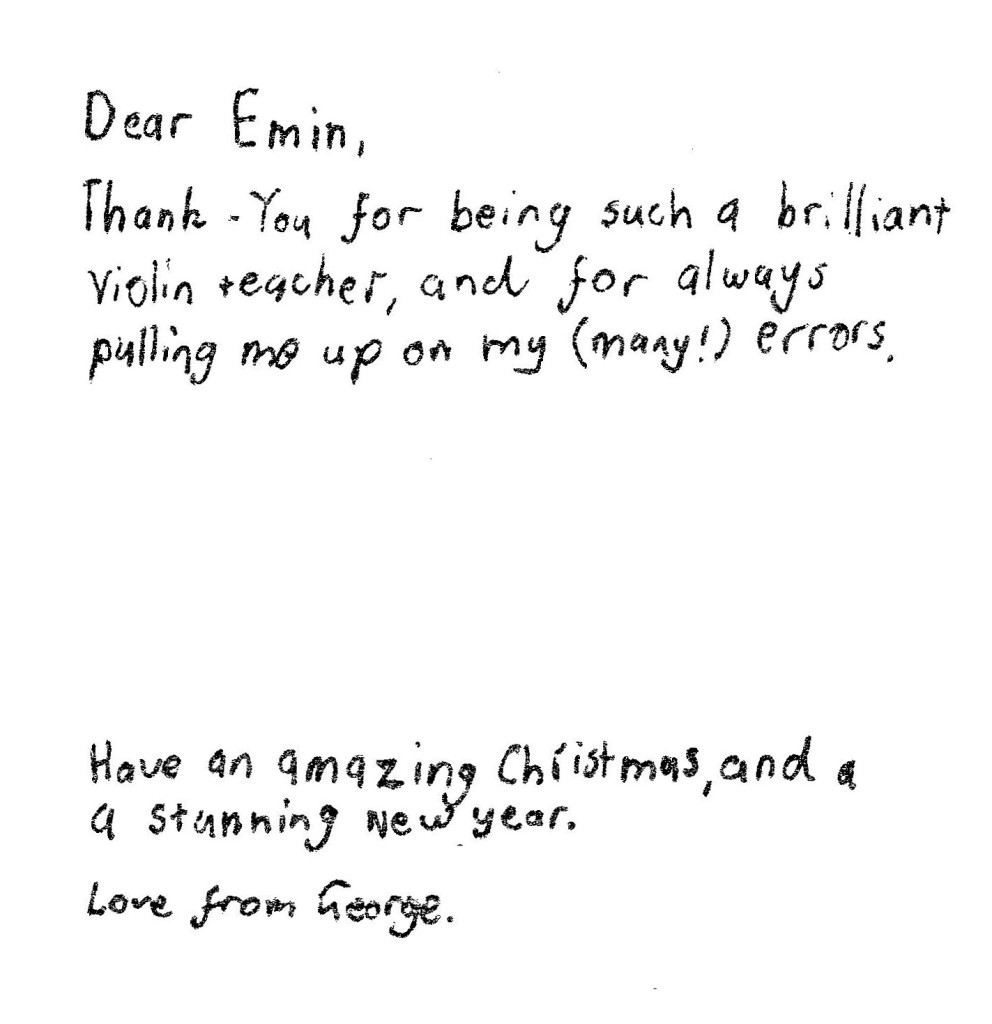 Dear Emin,
Thank-You for being such a brilliant
violin teacher, and for always
pulling me up on my (many!) errors.
Have an amazing Christmas, and a
a stunning New year.
Love from George.